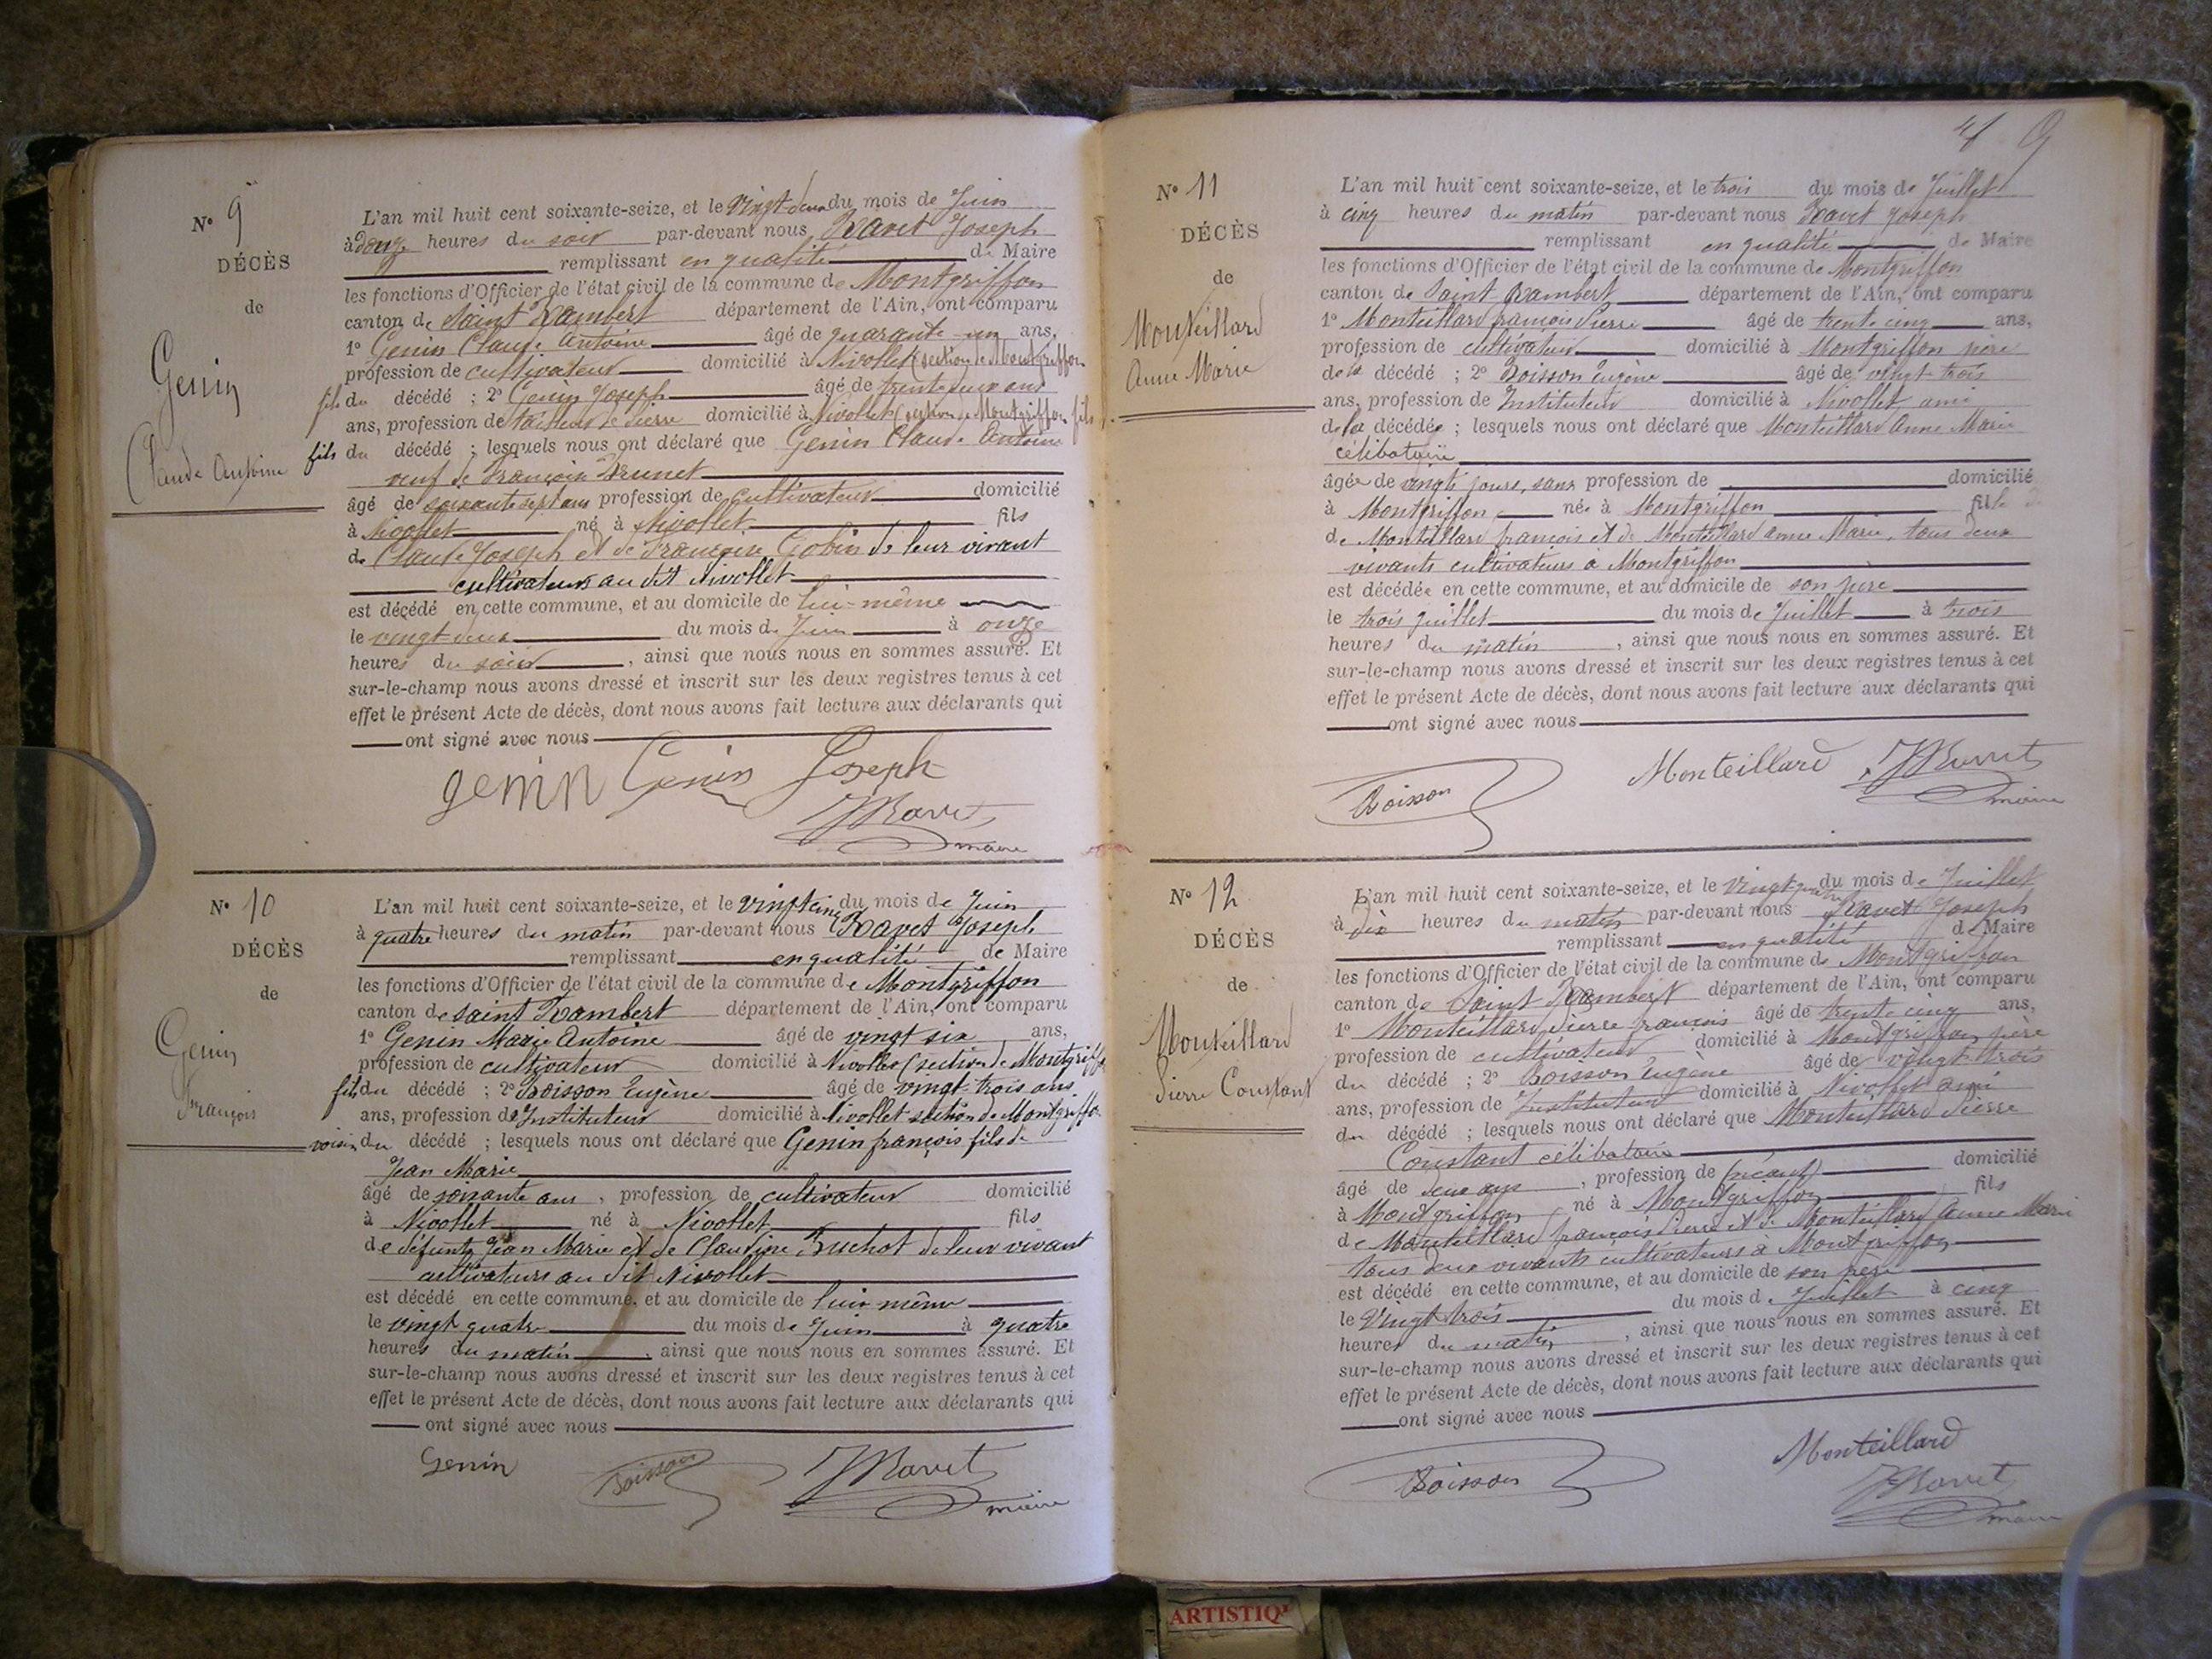 N° 9
DÉCÈS
de
Genin
Claude Antoine
L'an mil huit cent soixante-seize, et le vingt deux du mois de Juin
à douze heures du soir par-devant nous Ravet Joseph
remplissant en qualité de Maire
les fonctions d'Officier de l'état civil de la commune de Montgriffon
canton de Saint Rambert département de l'Ain, ont comparu
1° Genin Claude Antoine âgé de quarante un ans,
profession de cultivateur domicilié à Nivollet (section de Montgriffon
fils du décédé ; 2° Genin Joseph âgé de trente deux ans
ans, profession de tailleur de pierre domicilié à Nivollet (section de Montgriffon fils
fils du décédé ; lesquels nous ont déclaré que Genin Claude Antoine
veuf de Françoise Brunet
âgé de soixante sept ans profession de cultivateur domicilié
à Nivollet né à Nivollet fils
de Claude Joseph et de Françoise Gobin de leur vivant
cultivateurs au dit Nivollet
est décédé en cette commune, et au domicile de lui-même
le vingt-deux du mois de Juin à onze
heures du soir, ainsi que nous nous en sommes assuré. Et
sur-le-champ nous avons dressé et inscrit sur les deux registres tenus à cet
effet le présent Acte de décès, dont nous avons fait lecture aux déclarants qui
ont signé avec nous
genin Genin Joseph
JRavet
maire
N° 10
DÉCÈS
de
Genin
François
L'an mil huit cent soixante-seize, et le vingt cinq du mois de Juin
à quatre heures du matin par-devant nous Ravet Joseph
remplissant en qualité de Maire
les fonctions d'Officier de l'état civil de la commune de Montgriffon
canton de saint Rambert département de l'Ain, ont comparu
1° Genin Marie Antoine âgé de vingt six ans,
profession de cultivateur domicilié à Nivollet (section de Montgriffon
fils du décédé ; 2° Boisson Eugène âgé de vingt-trois ans
ans, profession de Instituteur domicilié à Nivollet section de Montgriffon
voisin du décédé ; lesquels nous ont déclaré que Genin françois fils de
Jean Marie
âgé de soixante ans, profession de cultivateur domicilié
à Nivollet né à Nivollet fils
de défunts Jean Marie et de Claudine Buchot de leur vivant
cultivateurs au dit Nivollet
est décédé en cette commune, et au domicile de lui même
le vingt quatre du mois de Juin à quatre
heures du matin, ainsi que nous nous en sommes assuré. Et
sur-le-champ nous avons dressé et inscrit sur les deux registres tenus à cet
effet le présent Acte de décès, dont nous avons fait lecture aux déclarants qui
ont signé avec nous
Genin Boisson JRavet
maire
9
N° 11
DÉCÈS
de
Monteillard
Anne Marie
L'an mil huit cent soixante-seize, et le trois du mois de Juillet
à cinq heures du matin par-devant nous Ravet Joseph
remplissant en qualité de Maire
les fonctions d'Officier de l'état civil de la commune de Montgriffon
canton de Saint Rambert département de l'Ain, ont comparu
1° Monteillard françois Pierre âgé de trente cinq ans,
profession de cultivateur domicilié à Montgriffon père
de la décédé ; 2° Boisson Eugène âgé de vingt-trois
ans, profession de Instituteur domicilié à Nivollet ami
de la décédée ; lesquels nous ont déclaré que Monteillard Anne Marie
célibataire
âgée de vingt jours, sans profession de domicilié
à Montgriffon née à Montgriffon fille
de Monteillard françois et de Monteillard anne Marie, tous deux
vivants cultivateurs à Montgriffon
est décédée en cette commune, et au domicile de son père
le trois juillet du mois de Juillet à trois
heures du matin, ainsi que nous nous en sommes assuré. Et
sur-le-champ nous avons dressé et inscrit sur les deux registres tenus à cet
effet le présent Acte de décès, dont nous avons fait lecture aux déclarants qui
ont signé avec nous
Boisson Monteillard JRavet
maire
N° 12
DÉCÈS
de
Monteillard
Pierre Constant
L'an mil huit cent soixante-seize, et le vingt-quatre du mois de Juillet
à dix heures du matin par-devant nous Ravet Joseph
remplissant en qualité de Maire
les fonctions d'Officier de l'état civil de la commune de Montgriffon
canton de Saint Rambert département de l'Ain, ont comparu
1° Monteillard Pierre françois âgé de trente cinq ans,
profession de cultivateur domicilié à Montgriffon père
du décédé ; 2° Boisson Eugène âgé de vingt-trois
ans, profession de Instituteur domicilié à Nivollet ami
du décédé ; lesquels nous ont déclaré que Monteillard Pierre
Constant célibataire
âgé de deux ans, profession de (néant) domicilié
à Montgriffon né à Montgriffon fils
de Monteillard françois Pierre et de Monteillard Anne Marie
tous deux vivants cultivateurs à Montgriffon
est décédé en cette commune, et au domicile de son père
le vingt trois du mois de Juillet à cinq
heures du matin, ainsi que nous nous en sommes assuré. Et
sur-le-champ nous avons dressé et inscrit sur les deux registres tenus à cet
effet le présent Acte de décès, dont nous avons fait lecture aux déclarants qui
ont signé avec nous
Boisson Monteillard
JRavet
maire
ARTISTIQ